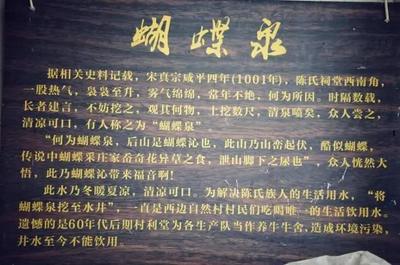 蝴蝶泉
据相关史料记载，宋真宗咸平四年(1001年)，陈氏祠堂西南角，
一股热气，袅袅至升，雾气绵绵，常年不绝、何为所因。时隔数载，
长者建言，不妨挖之，观其何物，土挖数尺，清泉喷矣，众人尝之，
清凉可口，有人称之为“蝴蝶泉”
“何为蝴蝶泉，后山是蝴蝶沁也，此山乃山峦起伏，酷似蝴蝶，
传说中蝴蝶采庄家奇花异草之食，泄山脚下之尿也”，众人恍然大
悟，此乃蝴蝶沁带来福音啊!
此水乃冬暖夏凉，清凉可口，为解决陈氏族人的生活用水，“将
蝴蝶泉挖至水井”，一直是西边自然村村民们吃喝唯一的生活饮用水。
遗憾的是60年代后期村利堂为各生产队当作养牛牛舍，造成环境污染，
井水至今不能饮用。